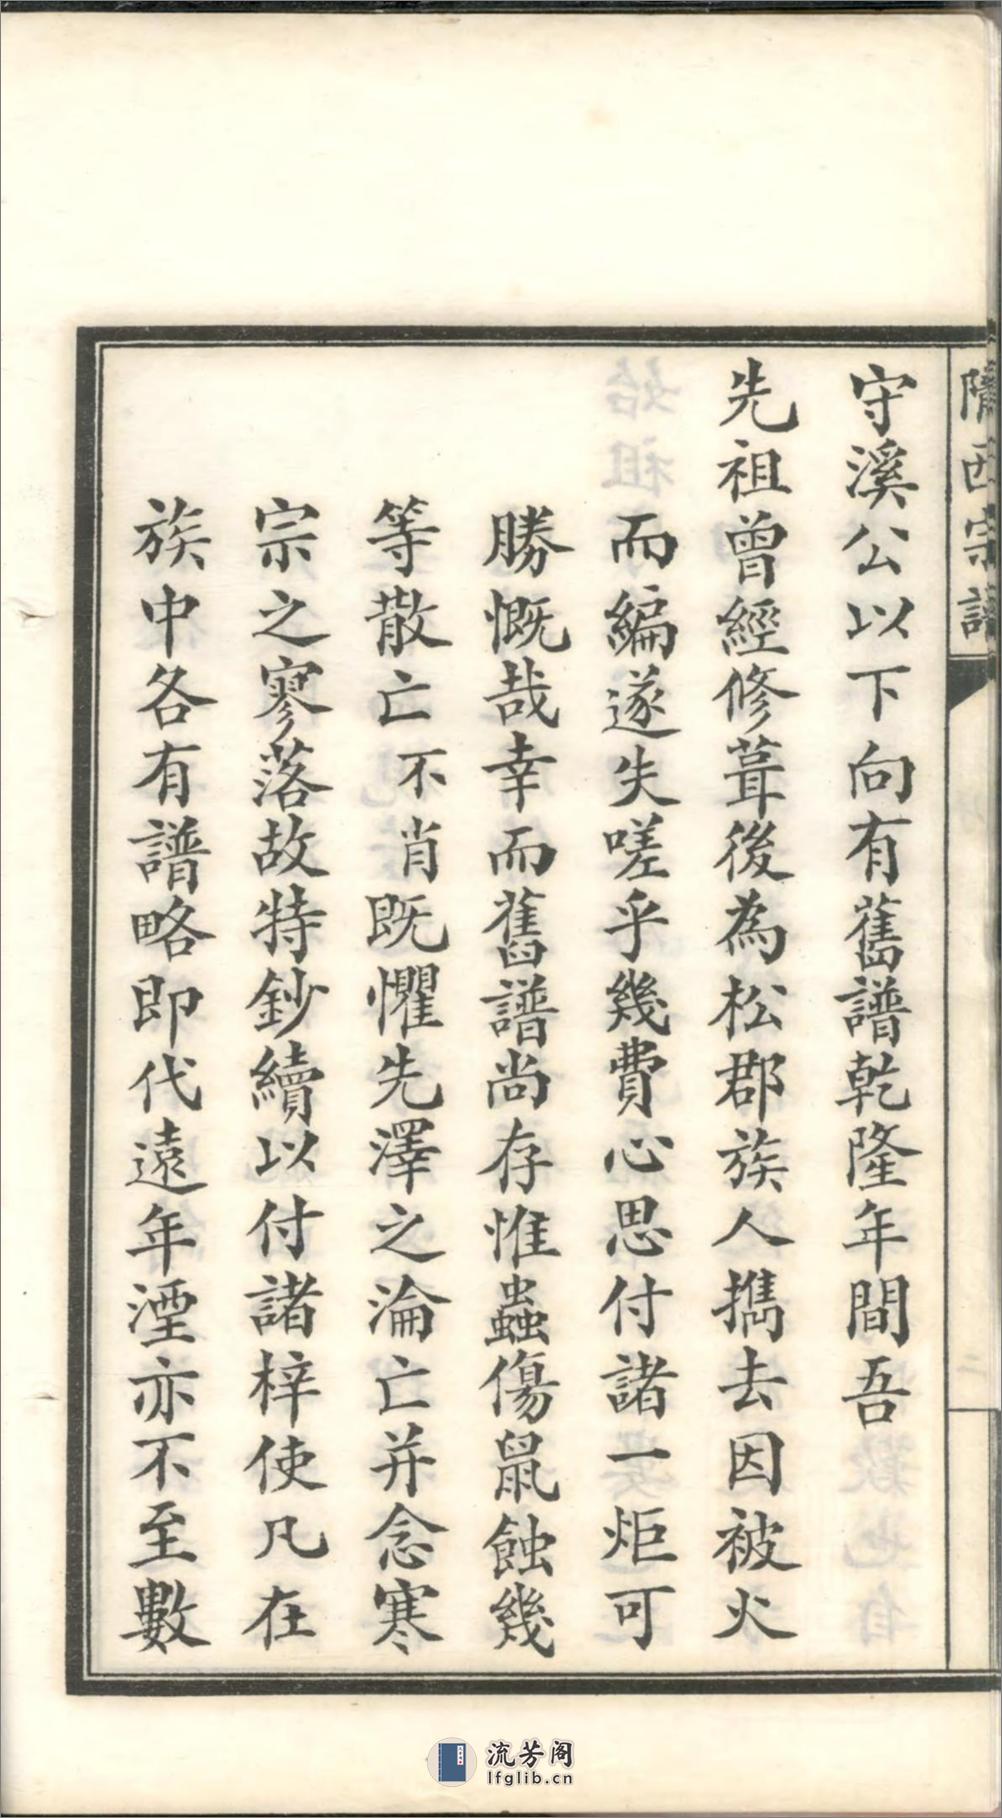 隴西宗譜
二
守溪公以下向有舊譜乾隆年間吾
先祖曾經修葺後為松郡族人攜去因被火
而編遂失嗟乎幾費心思付諸一炬可
勝慨哉幸而舊譜尚存惟蟲傷鼠蝕幾
等散亡不肖既懼先澤之淪亡并念寒
宗之寥落故特鈔續以付諸梓使凡在
族中各有譜略即代遠年湮亦不至數
流芳阁
lfglib.cn